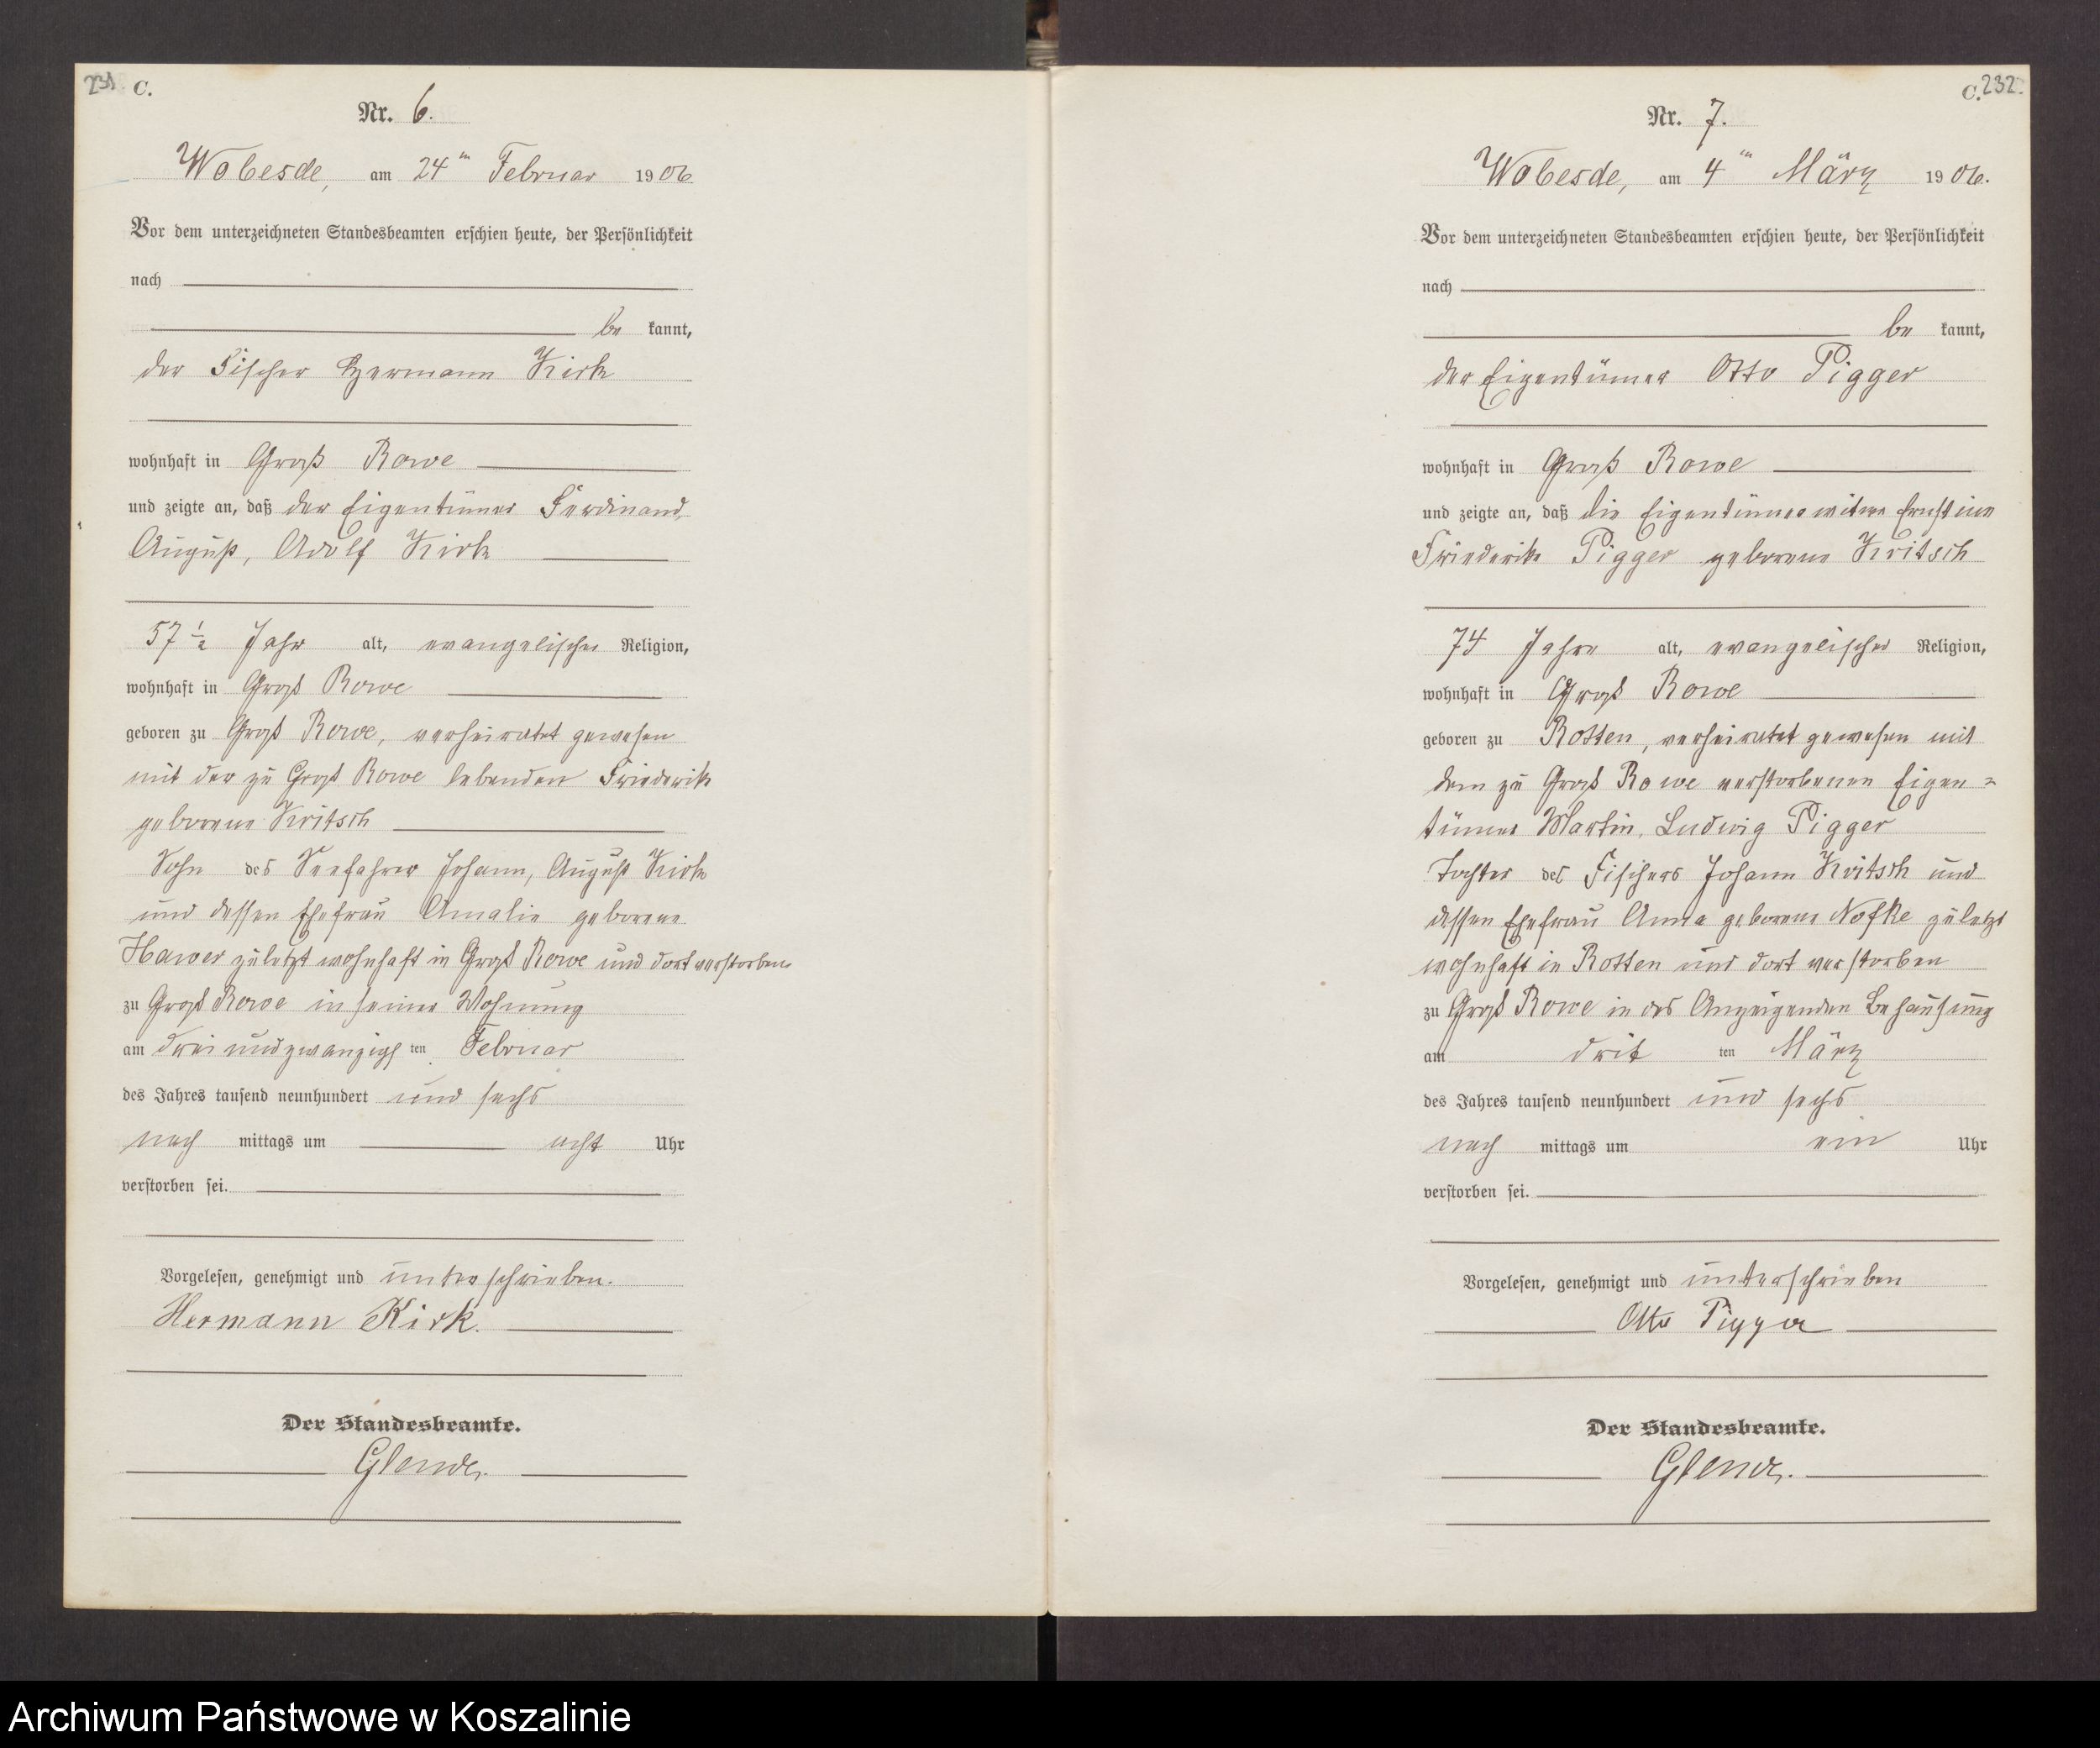 231 C.
Nr. 6.
Wobesde, am 24ten Februar 1906
Vor dem unterzeichneten Standesbeamten erschien heute, der Persönlichkeit
nach
be kannt,
der Fischer Hermann Kirk
wohnhaft in Groß Rowe
und zeigte an, daß der Eigentümer Ferdinand,
August, Adolf Kirk
57 1/2 Jahr alt, evangelischer Religion,
wohnhaft in Groß Rowe
geboren zu Groß Rowe, verheiratet gewesen
mit der zu Groß Rowe lebenden Friederike
geborene Kritsch
Sohn des Seefahrer Johann, August Kirk
und dessen Ehefrau Amalie geborene
Hawer zuletzt wohnhaft in Groß Rowe und dort verstorben
zu Groß Rowe in seiner Wohnung
am drei und zwanzigs ten Februar
des Jahres tausend neunhundert und sechs
nach mittags um acht Uhr
verstorben sei.
Vorgelesen, genehmigt und unterschrieben.
Hermann Kirk.
Der Standesbeamte.
C. 232.
Nr. 7.
Wobesde, am 4ten März 1906.
Vor dem unterzeichneten Standesbeamten erschien heute, der Persönlichkeit
nach
be kannt,
der Eigentümer Otto Pigger
wohnhaft in Groß Rowe
und zeigte an, daß die Eigentümerwitwe Ernstine
Friederike Pigger geborene Kritsch
74 Jahre alt, evangelischer Religion,
wohnhaft in Groß Rowe
geboren zu Rotten, verheiratet gewesen mit
dem zu Groß Rowe verstorbenen Eigen=
tümer Martin, Ludwig Pigger
Tochter des Fischers Johann Kritsch und
dessen Ehefrau Anna geborene Nofke zuletzt
wohnhaft in Rotten und dort verstorben
zu Groß Rowe in des Anzeigenden Behausung
am drit ten März
des Jahres tausend neunhundert und sechs
nach mittags um ein Uhr
verstorben sei.
Vorgelesen, genehmigt und unterschrieben
Otto Pigger
Der Standesbeamte.
Archiwum Państwowe w Koszalinie